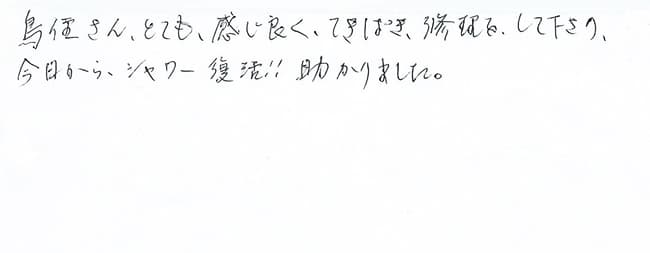 鳥住さん、とても、感じ良く、てきぱき、修理を、して下さり、
今日から、シャワー復活!! 助かりました。